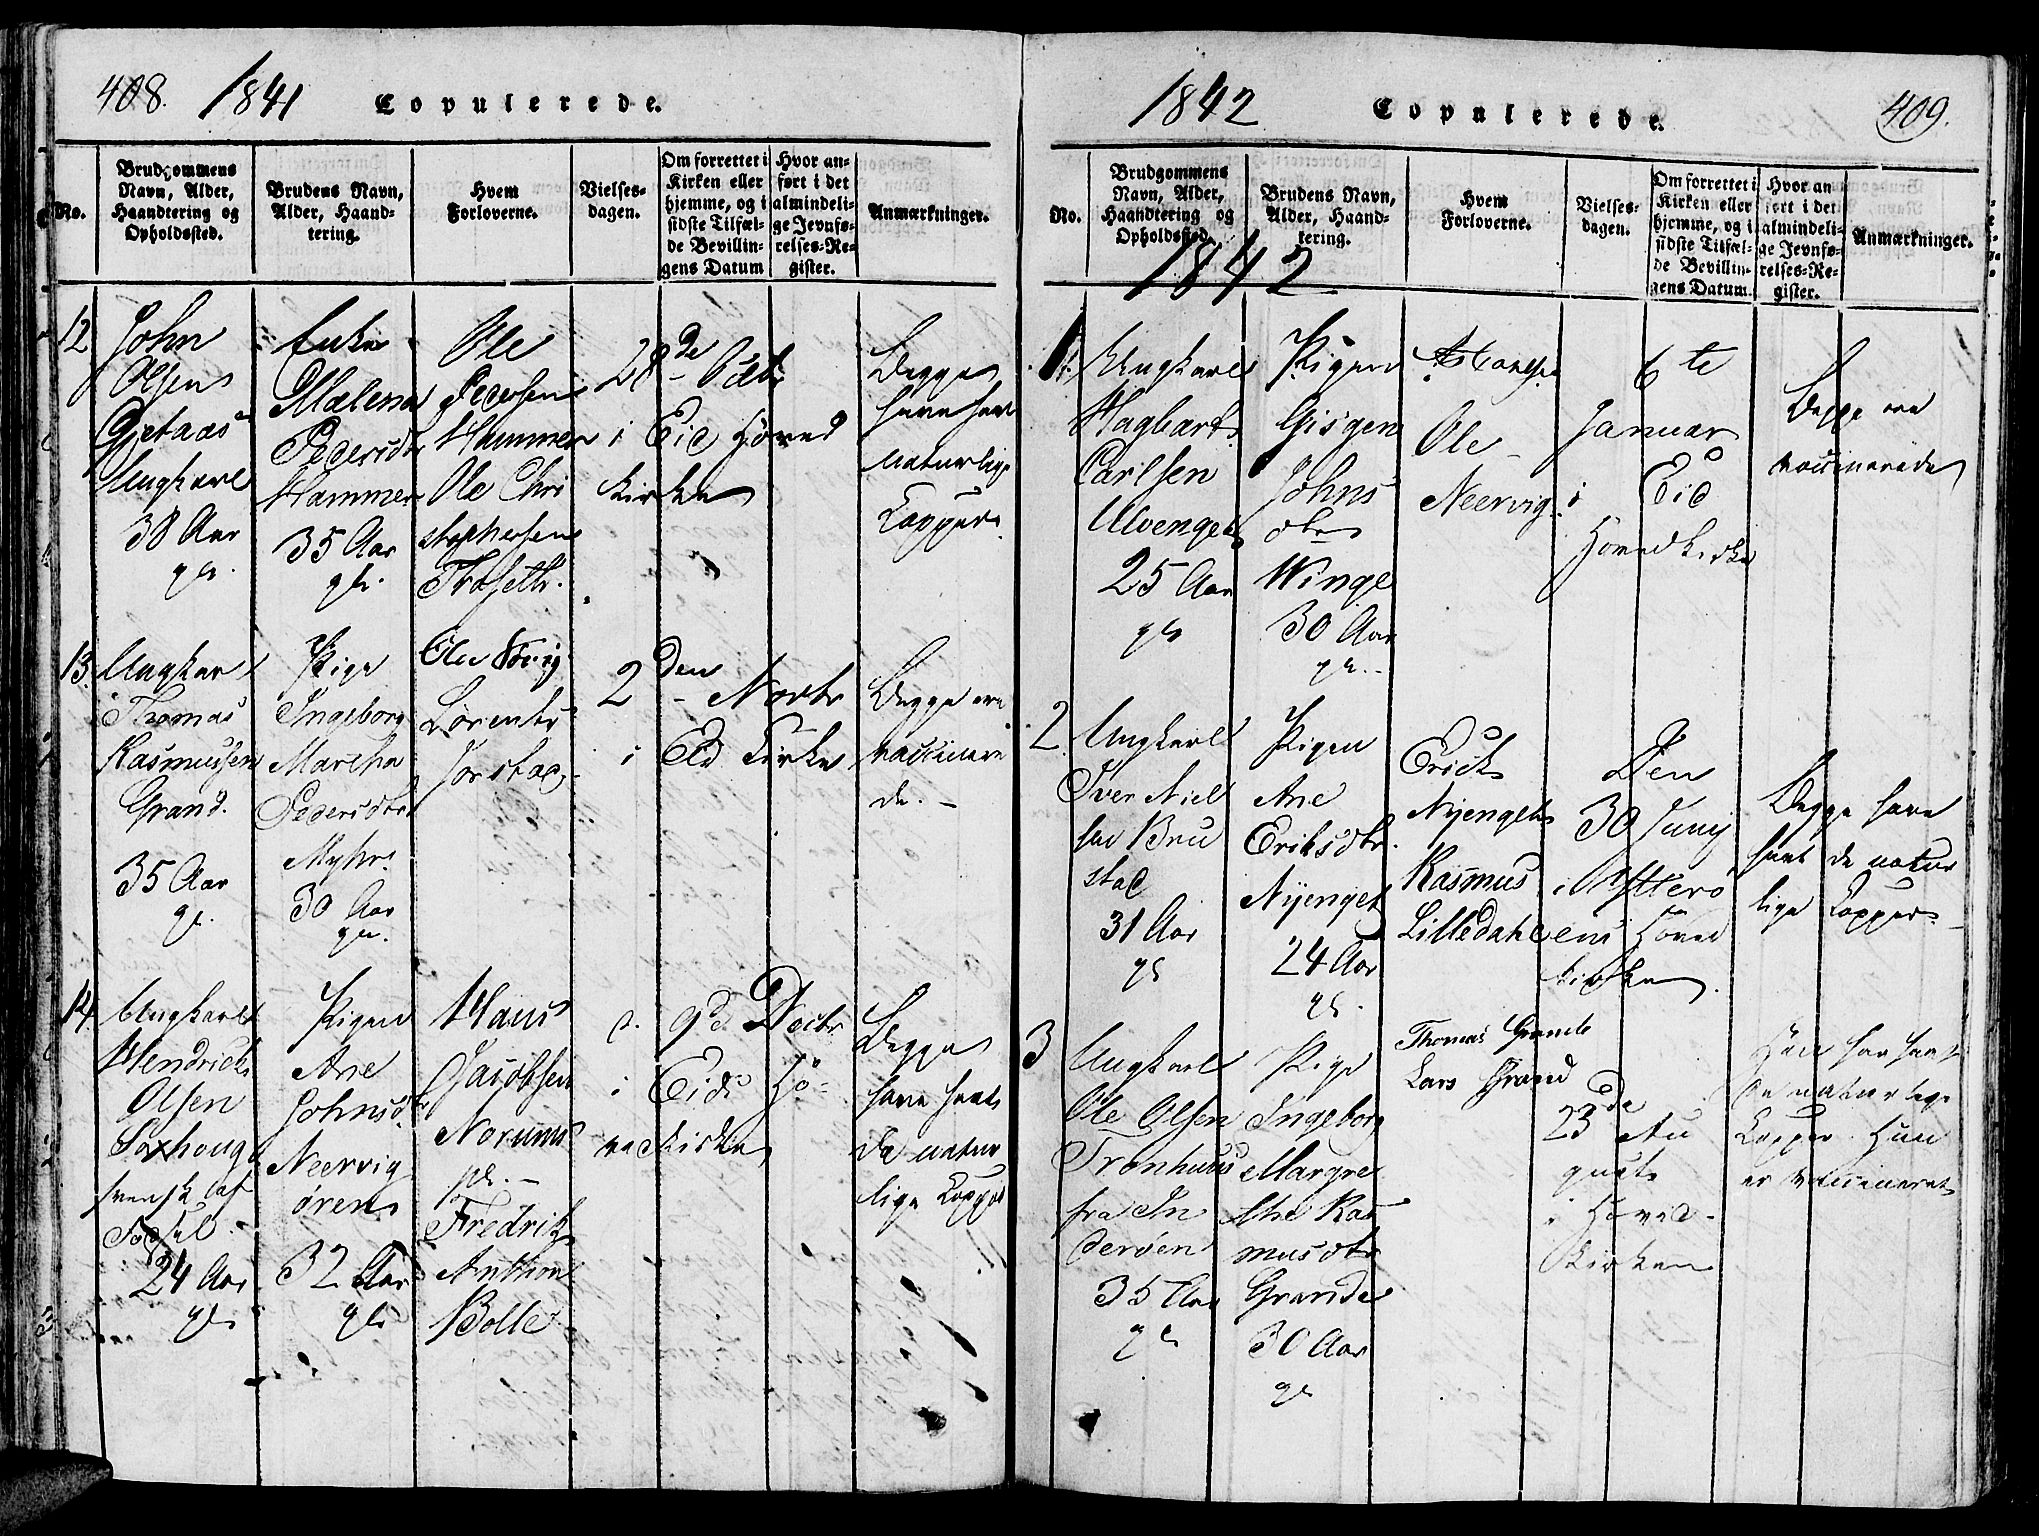 408. 1841 Copulerede.
No.
Brudgommens
Navn, Alder,
Haandtering og
Opholdssted.
Brudens Navn,
Alder, Haand-
tering.
Hvem
Forloverne.
Vielses-
dagen.
Om forrettet i
Kirken eller
hjemme, og i
sidste Tilfæl-
de Bevillin-
gens Datum
Hvor an-
ført i det
almindeli-
ge Jevnfø-
relses-Re-
gister.
Anmærkninger.
12
John
Olsen
Ungkarl
38 Aar
Enke
Malena
Pedersdtr
Hammer
35 Aar
Ole
Pedersen
Hammer
Ole Chri
stophersen
28de Octbr
i Eid Hoved
Kirken
Begge
have havt
naturlige
Kopper.
13.
Ungkarl
Thomas
Rasmussen
Grand.
35 Aar
Pige
Ingeborg
Martha
Pedersdtr
Myhr
30 Aar
Lorents
Jorstad
2den Novbr
i Eid Kirke
Begge ere
vaccinere
de.
14.
Ungkarl
Hendrich
Olsen
svensk af
24 Aar
Pigen
Ane
Johnsdtr
Neervig
ören
32 Aar
Hans
Jacobsen
Norums
Fredrik
Anthon
Bolle
d. 9de Decbr
i Eids Ho
ved Kirke
Begge
have havt
de natur
lige Kopper
1842 Copulerede. 409.
No.
Brudgommens
Navn, Alder,
Haandtering og
Opholdssted.
Brudens Navn,
Alder, Haand-
tering.
Hvem
Forloverne.
Vielses-
dagen.
Om forrettet i
Kirken eller
hjemme, og i
sidste Tilfæl-
de Bevillin-
gens Datum.
Hvor an
ført i det
almindeli-
ge Jevnfø-
relses-Re-
gister.
Anmærkninger.
1842
1.
Ungkarl
Hagbart
Carlsen
Ulvenget
25 Aar
Pigen
Johns
dtr
Winge
30 Aar
Ole
Neervig
6te
Januar
i Eid
Hovedkirke
Begge ere
vaccinerede
2
Ungkarl
Iver Niel
sen Bru
stad
31 Aar
Pigen
Ane
Eriksdtr.
Nyenget
24 Aar
Erick
Nyenget
Rasmus
Lilledahl
Den
30 Junij
i Ytterö
ens Hoved
kirken
Begge have
havt de natur
lige Kopper
3
Ungkarl
Ole Olsen
Tronhuus
fra In
deröen
35 Aar
Pige
Ingeborg
Margre
the Ras
musdtr
Grande
30 Aar
Thomas Grande
Lars Grand
23de Au
gust
i Hoved
Kirken
Han har havt
de naturlige
Kopper. Hun
er vaccineret